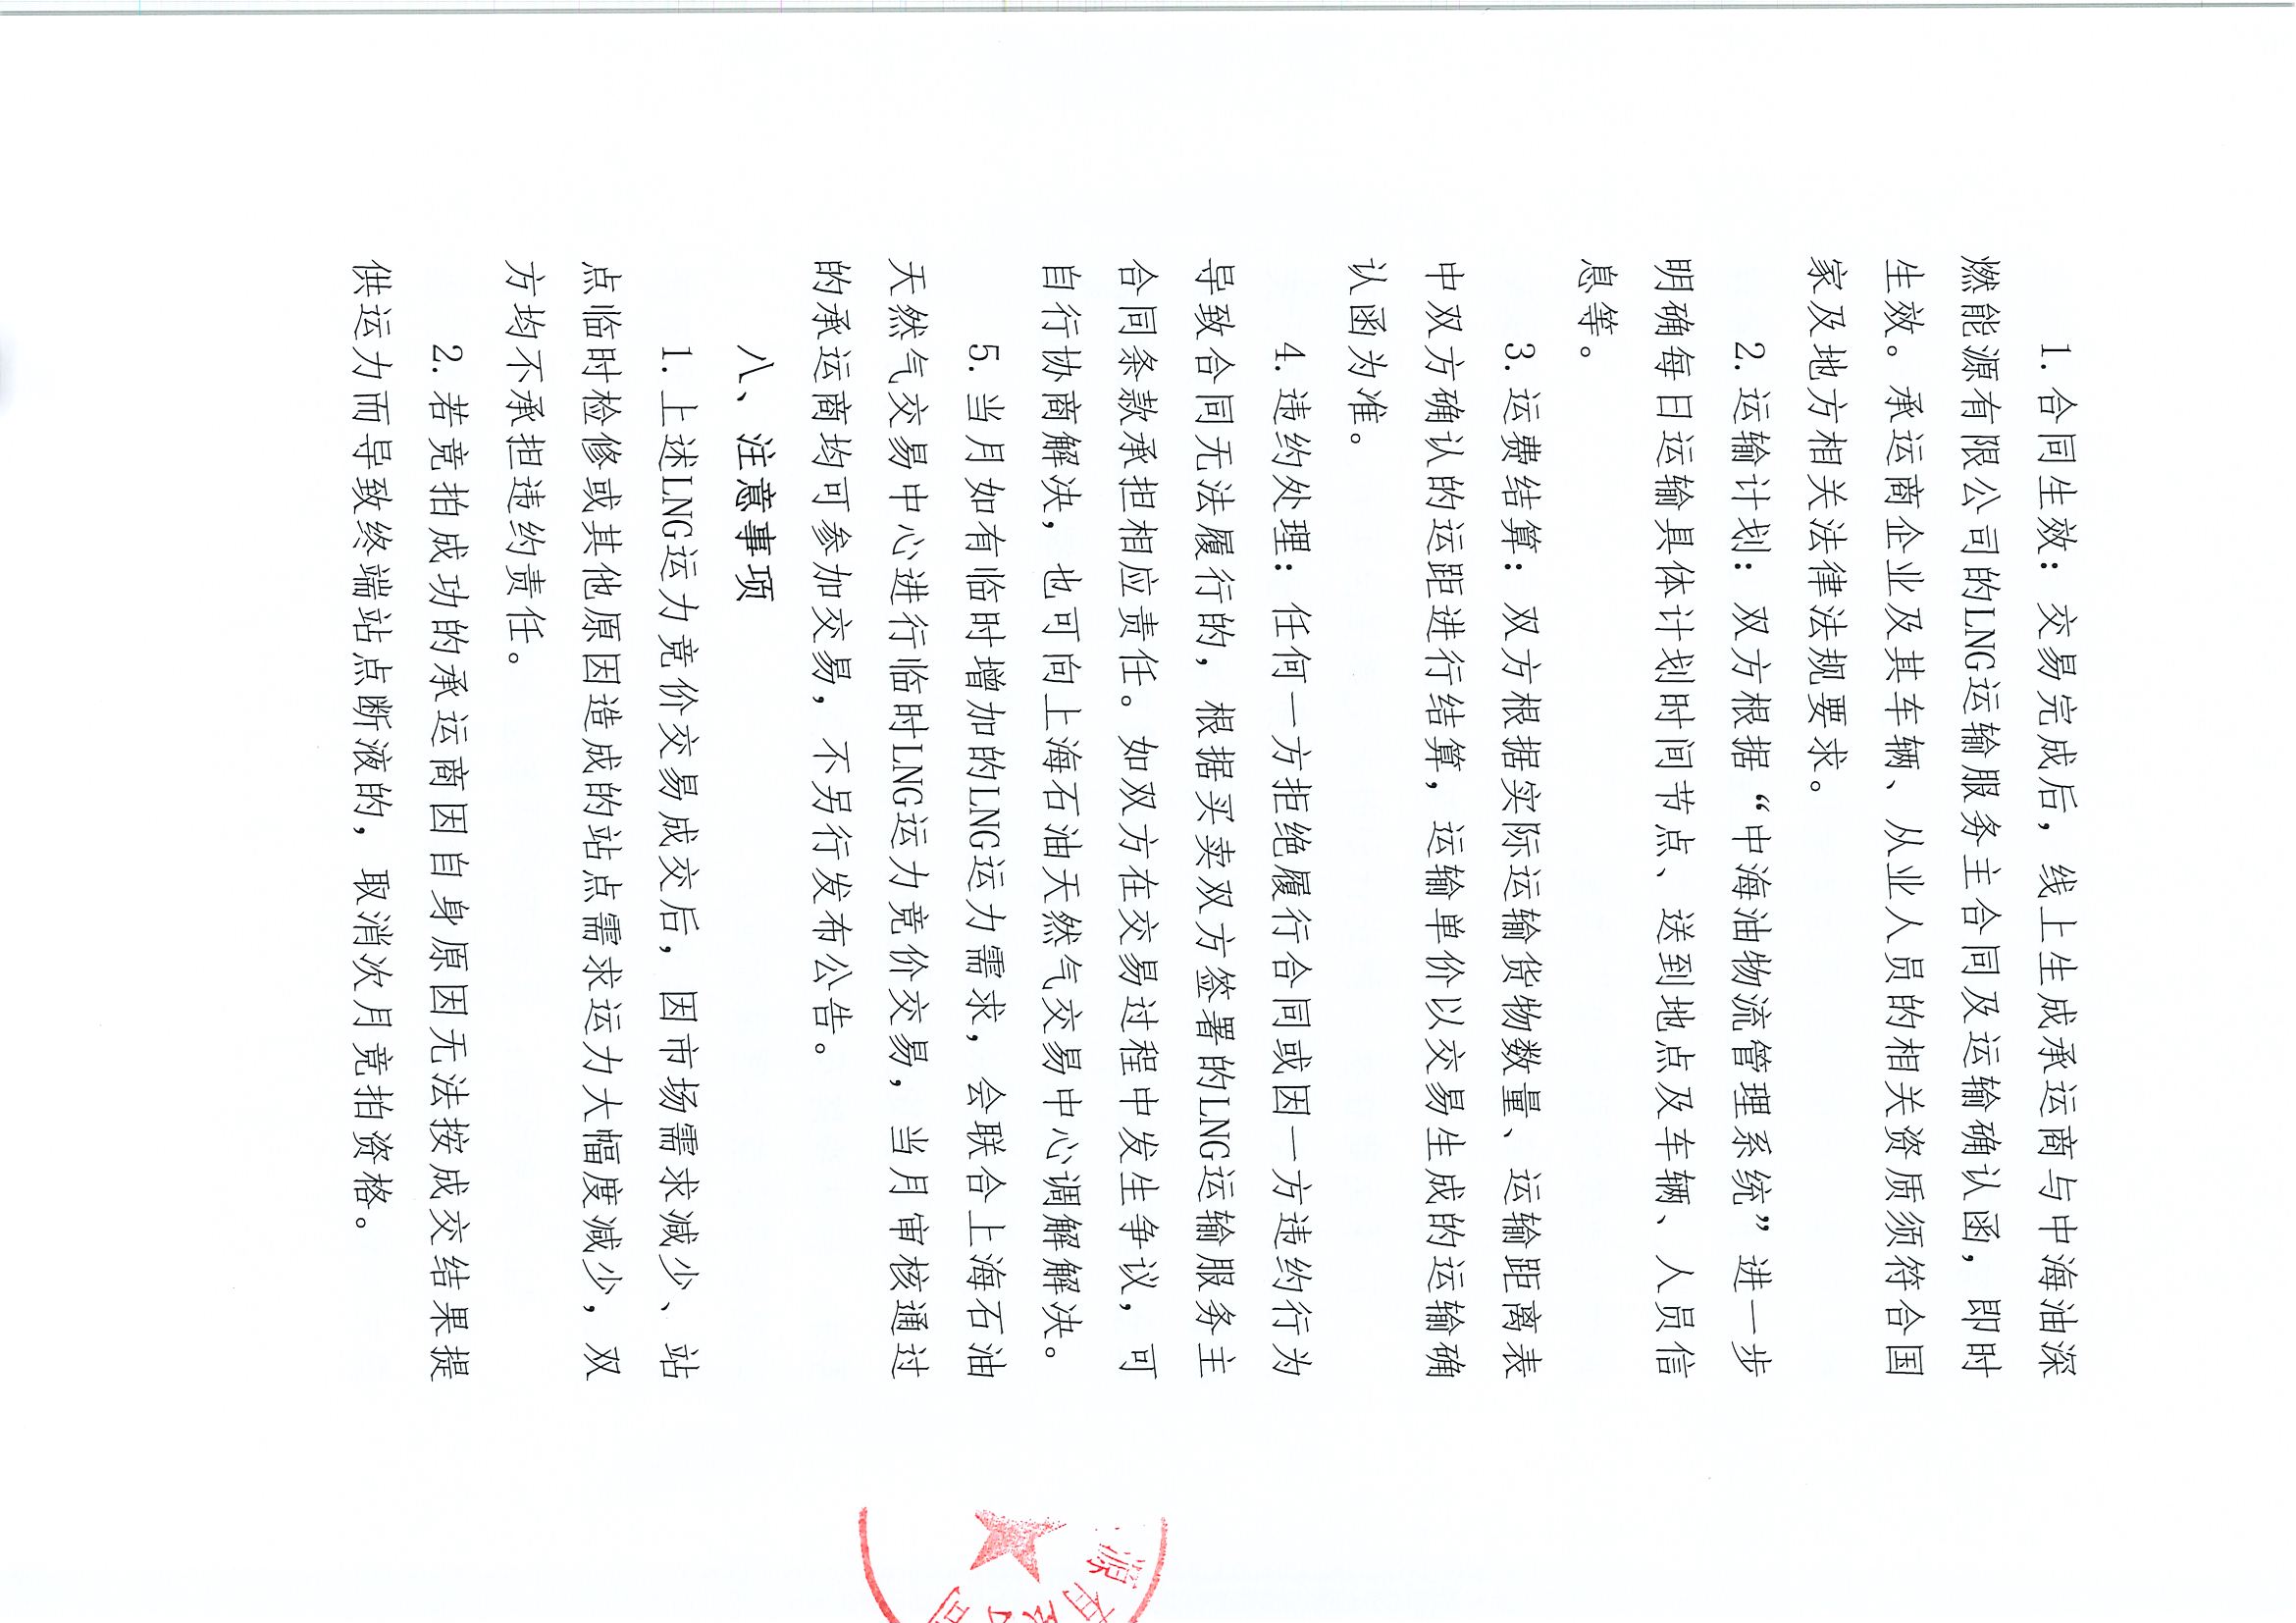 1. 合同生效：交易完成后，线上生成承运商与中海油深
燃能源有限公司的LNG运输服务主合同及运输确认函，即时
生效。承运商企业及其车辆、从业人员的相关资质须符合国
家及地方相关法律法规要求。
2. 运输计划：双方根据“中海油物流管理系统”进一步
明确每日运输具体计划时间节点、送到地点及车辆、人员信
息等。
3. 运费结算：双方根据实际运输货物数量、运输距离表
中双方确认的运距进行结算，运输单价以交易生成的运输确
认函为准。
4. 违约处理：任何一方拒绝履行合同或因一方违约行为
导致合同无法履行的，根据买卖双方签署的LNG运输服务主
合同条款承担相应责任。如双方在交易过程中发生争议，可
自行协商解决，也可向上海石油天然气交易中心调解解决。
5. 当月如有临时增加的LNG运力需求，会联合上海石油
天然气交易中心进行临时LNG运力竞价交易，当月审核通过
的承运商均可参加交易，不另行发布公告。
八、注意事项
1. 上述LNG运力竞价交易成交后，因市场需求减少、站
点临时检修或其他原因造成的站点需求运力大幅度减少，双
方均不承担违约责任。
2. 若竞拍成功的承运商因自身原因无法按成交结果提
供运力而导致终端站点断液的，取消次月竞拍资格。
源有
司